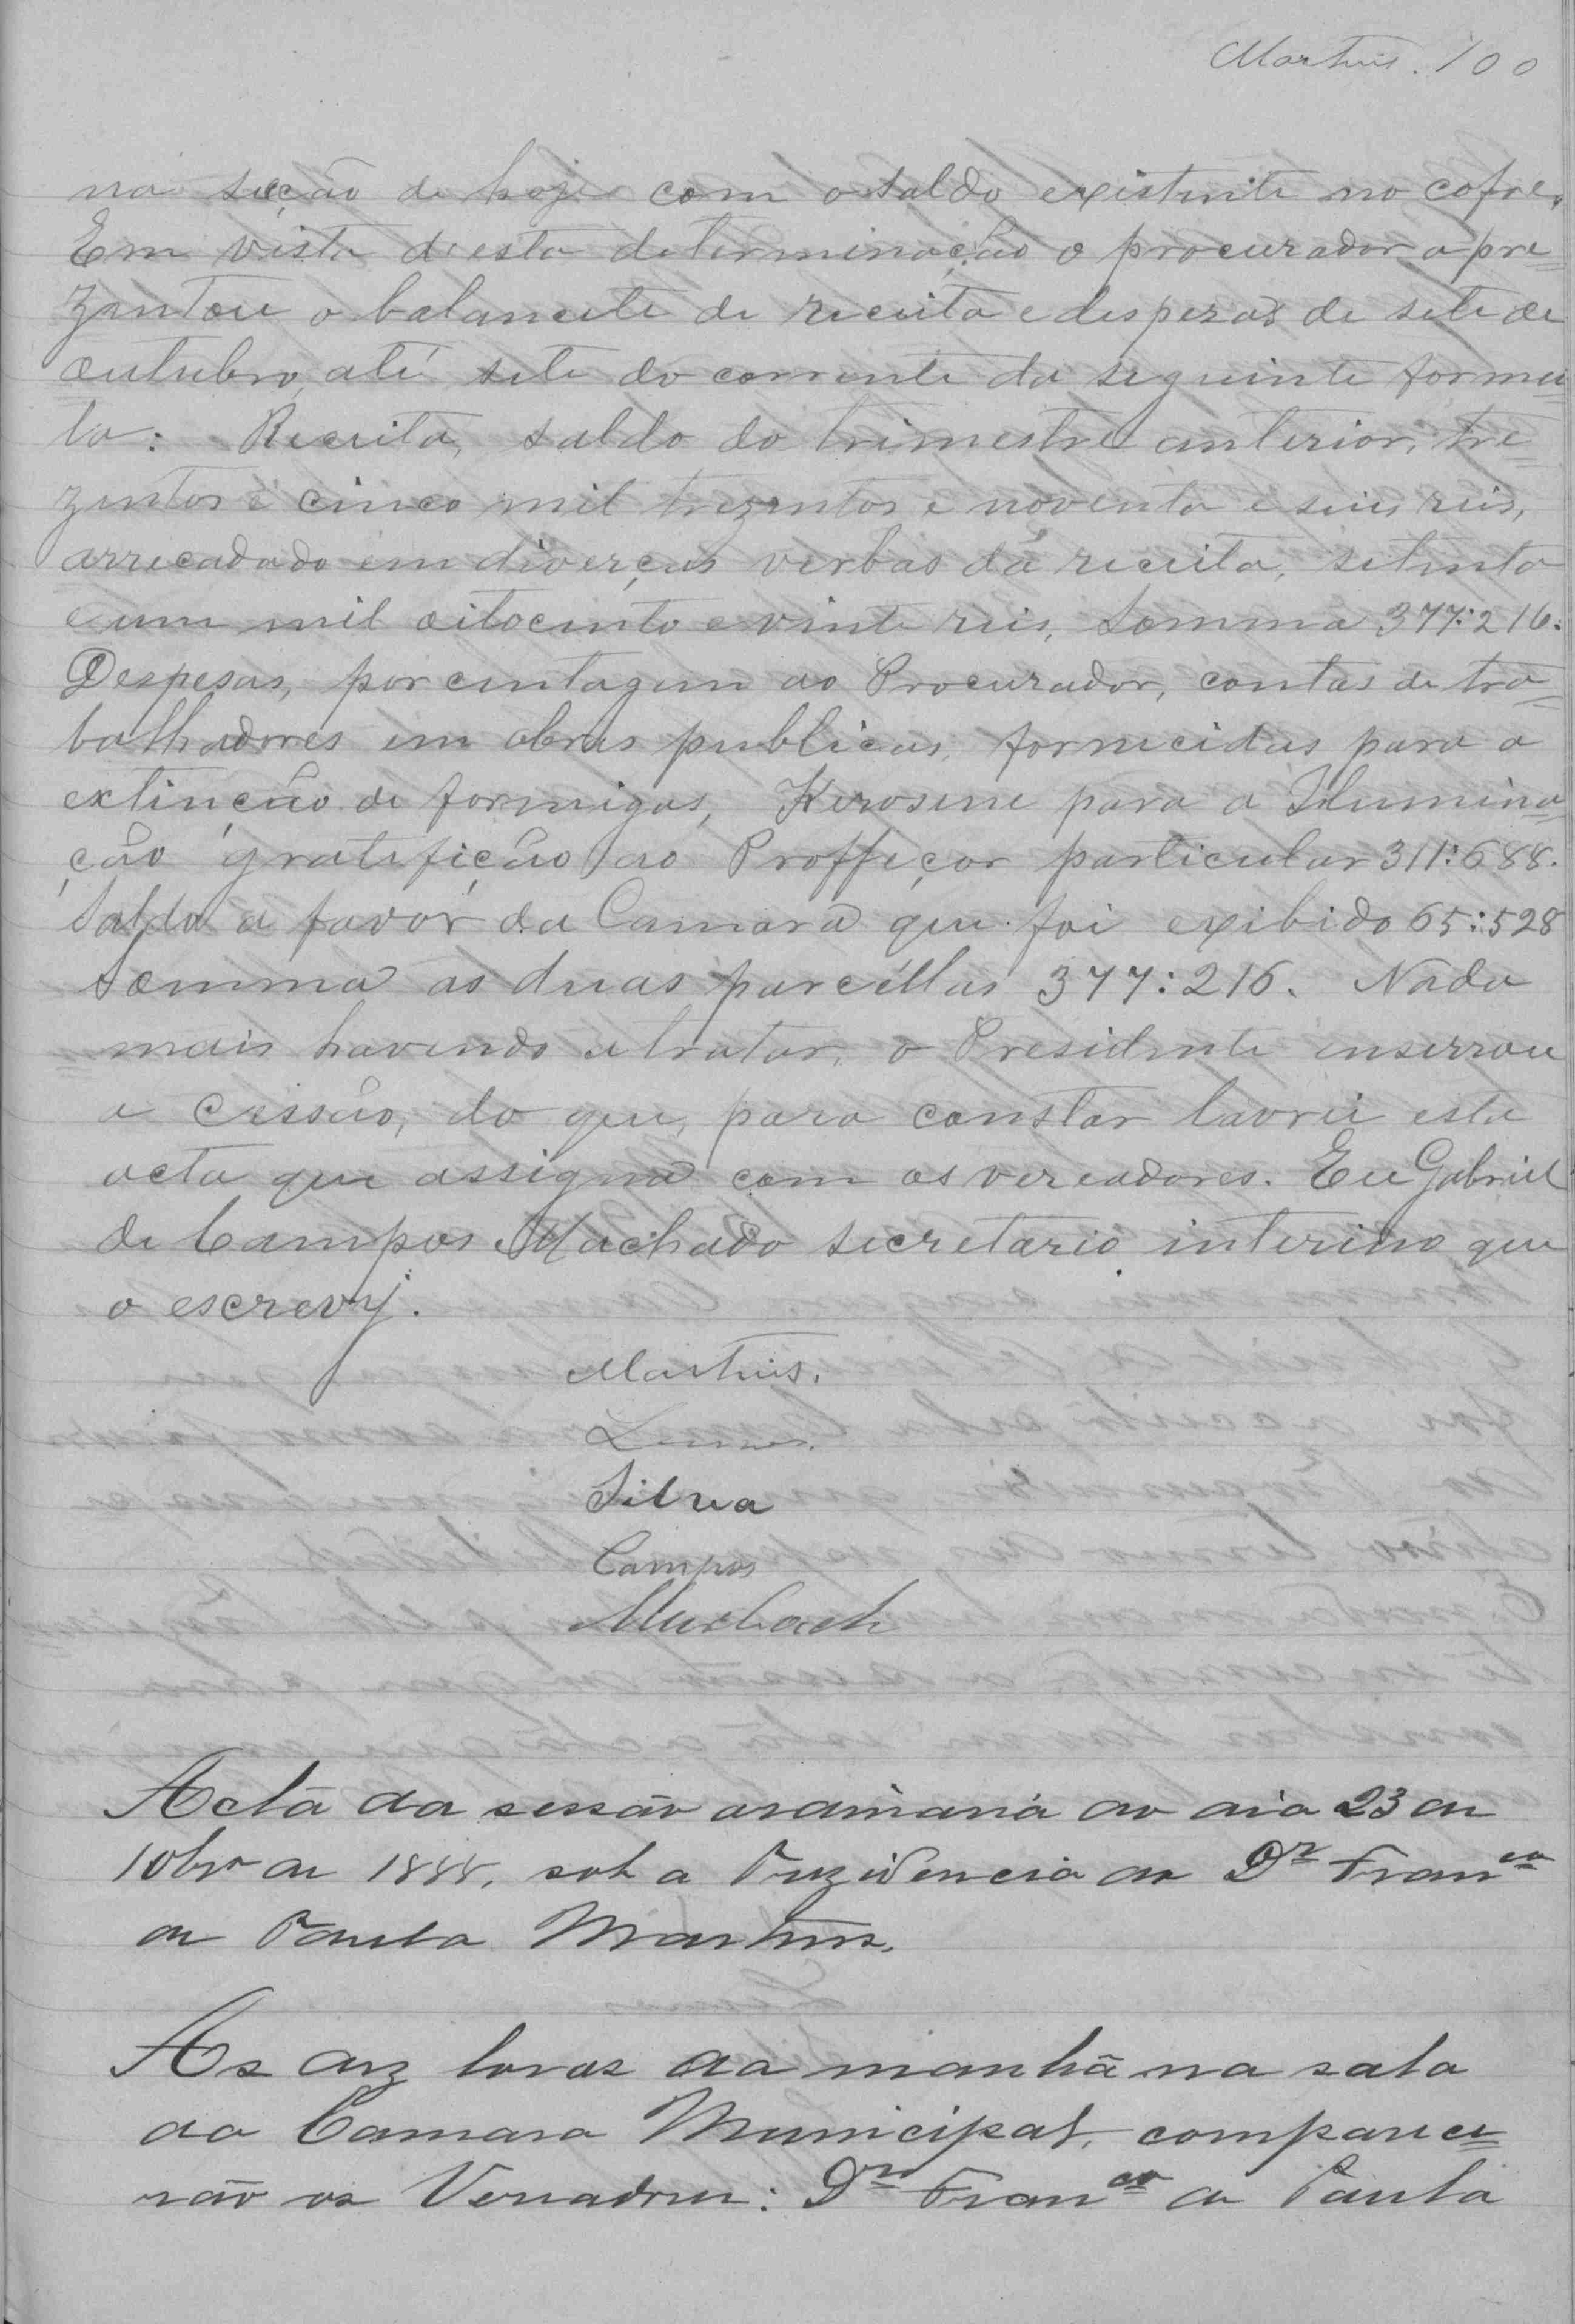 Martins. 100
na secção de hoje com o saldo existente no cofre.
Em vista d'esta determinação o procurador apre=
zentou o balancete de receita e despezas de sete de
outubro, até sete do corrente da seguinte formu=
la: Receita, saldo do trimestre anterior, tre=
zentos e cinco mil trezentos e noventa e seis reis,
arrecadado em diverças verbas da receita, setenta
e um mil oitocento e vinte reis, Somma 377:216.
Despesas, porcentagem ao Procurador, contas de tra=
balhadores em obras publicas, fornecidas para a
extincção de formigas, Kerosene para a Ilumina=
ção gratificão ao Proffeçor particular 311:688.
Saldo a favor da Camara que foi exibido 65:528
somma as duas parcellas 377:216. Nada
mais havendo a tratar, o Presidente enserrou
a cessão, do que, para constar lavrei esta
acta que assigna com os vereadores. Eu Gabriel
de Campos Machado secretario interino que
o escrevy.
Martins.
Lemes.
Silva
Campos
Murbach
Acta da sessão ordinaria do dia 23 de
10bro de 1888, sob a Prezidencia do Dr Franco
de Paula Martins.
As dez horas da manhã na sala
da Camara Municipal, comparece=
rão os Vereadores: Dr Franco de Paula